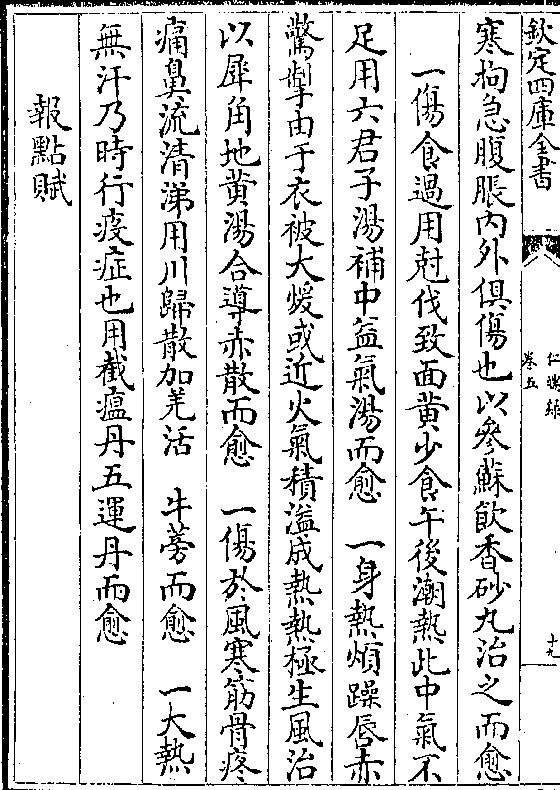 欽定四庫全書
卷五
十九
寒拘急腹脹内外俱傷也以參蘇飲香砂丸治之而愈
一傷食過用尅伐致面黄少食午後潮熱此中氣不
足用六君子湯補中益氣湯而愈　一身熱煩躁唇赤
驚搐由于衣被大煖或近火氣積溢成熱熱極生風治
以犀角地黄湯合導赤散而愈　一傷於風寒筋骨疼
痛鼻流清涕用川歸散加羌活　牛蒡而愈　一大熱
無汗乃時行疫症也用截瘟丹五運丹而愈
報點賦